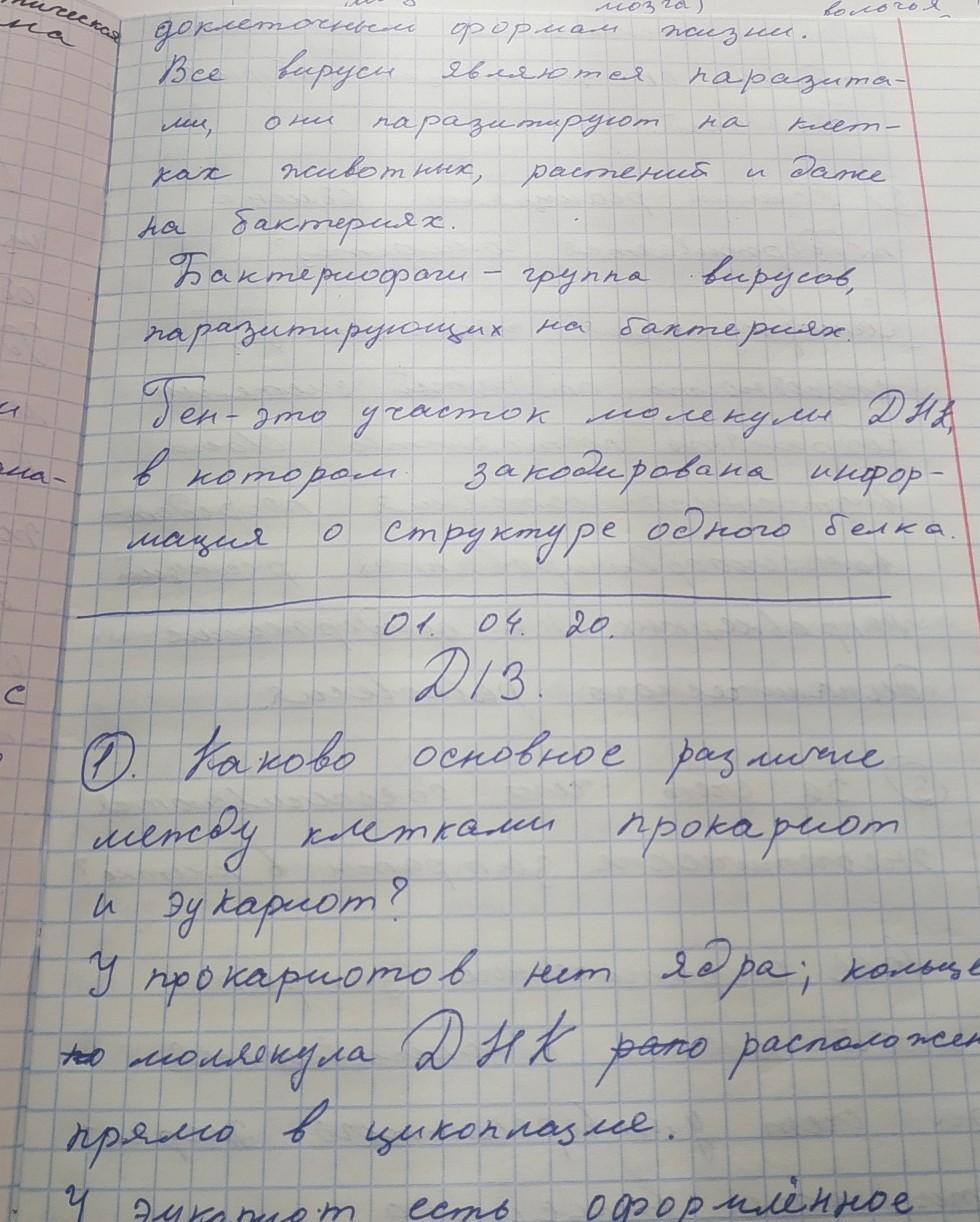 мозга)
на
доклеточным формам жизни.
Все вирусы являются паразита-
ми, они паразитируют на клет-
ках животных, растений и даже
на бактериях.
Бактериофаги – группа вирусов,
паразитирующих на бактериях.
Ген – это участок молекулы ДНК,
на-
в котором закодирована инфор-
мация о структуре одного белка.
01. 04. 20.
Д/З.
с
1. Каково основное различие
между клетками прокариот
и эукариот?
У прокариотов нет ядра; кольце
но моляекула ДНК рапо расположен
прямо в цикоплазме.
У эукариот есть оформлённое